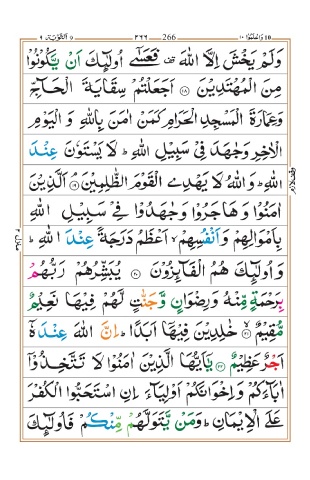 واعلموا ١٠ 266 ٢٦٦ التوبة ٩
وَلَمْ يَخْشَ اِلَّا اللّٰهَ فَعَسٰٓى اُولٰٓئِكَ اَنْ يَّكُوْنُوْا
مِنَ الْمُهْتَدِيْنَ ۝١٨ اَجَعَلْتُمْ سِقَايَةَ الْحَآجِّ
وَعِمَارَةَ الْمَسْجِدِ الْحَرَامِ كَمَنْ اٰمَنَ بِاللّٰهِ وَ الْيَوْمِ
الْاٰخِرِ وَجٰهَدَ فِيْ سَبِيْلِ اللّٰهِ ؕ لَا يَسْتَوٗنَ عِنْدَ
اللّٰهِ ؕ وَاللّٰهُ لَا يَهْدِي الْقَوْمَ الظّٰلِمِيْنَ ۝١٩ اَلَّذِيْنَ
اٰمَنُوْا وَهَاجَرُوْا وَجٰهَدُوْا فِيْ سَبِيْلِ اللّٰهِ
بِاَمْوَالِهِمْ وَاَنْفُسِهِمْ ۙ اَعْظَمُ دَرَجَةً عِنْدَ اللّٰهِ ؕ
وَاُولٰٓئِكَ هُمُ الْفَآئِزُوْنَ ۝٢٠ يُبَشِّرُهُمْ رَبُّهُمْ
بِرَحْمَةٍ مِّنْهُ وَرِضْوَانٍ وَّجَنّٰتٍ لَّهُمْ فِيْهَا نَعِيْمٌ
مُّقِيْمٌ ۝٢١ خٰلِدِيْنَ فِيْهَآ اَبَدًا ؕ اِنَّ اللّٰهَ عِنْدَهٗٓ
اَجْرٌ عَظِيْمٌ ۝٢٢ يٰٓاَيُّهَا الَّذِيْنَ اٰمَنُوْا لَا تَتَّخِذُوْٓا
اٰبَآءَكُمْ وَاِخْوَانَكُمْ اَوْلِيَآءَ اِنِ اسْتَحَبُّوا الْكُفْرَ
عَلَى الْاِيْمَانِ ؕ وَمَنْ يَّتَوَلَّهُمْ مِّنْكُمْ فَاُولٰٓئِكَ